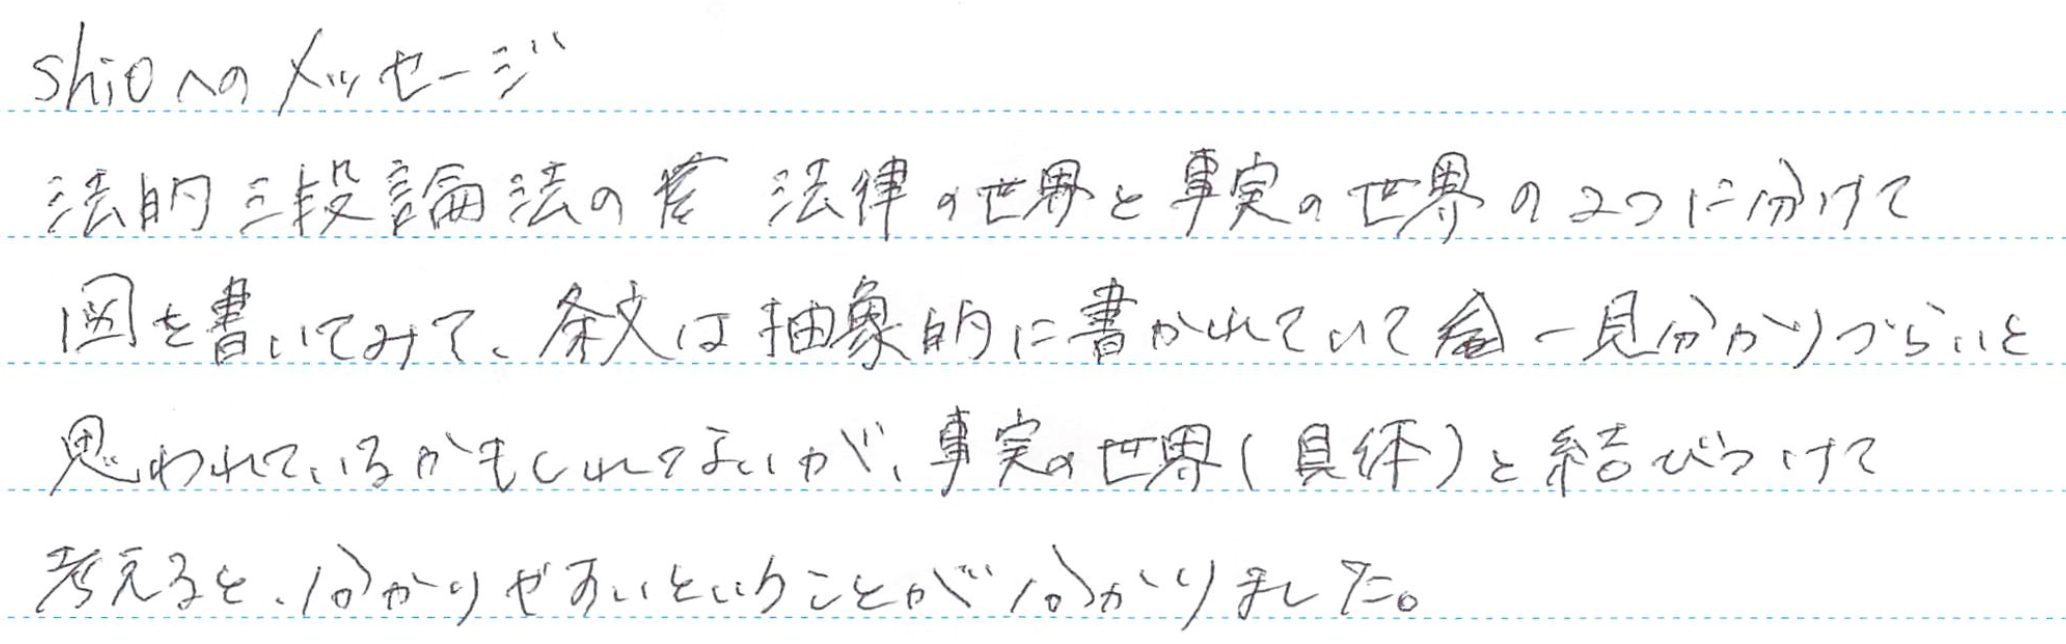 shioへのメッセージ
法的三段論法の 法律の世界と事実の世界の2つに分けて
図を書いてみて、条文は抽象的に書かれていて 一見分かりづらいと
思われているかもしれてないが、事実の世界(具体)と結びつけて
考えると、分かりやすいということが分かりました。